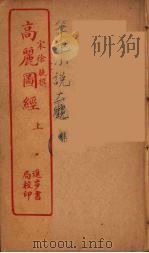 高麗圖經
宋徐兢撰
上
進步書
局校印
筆記小說